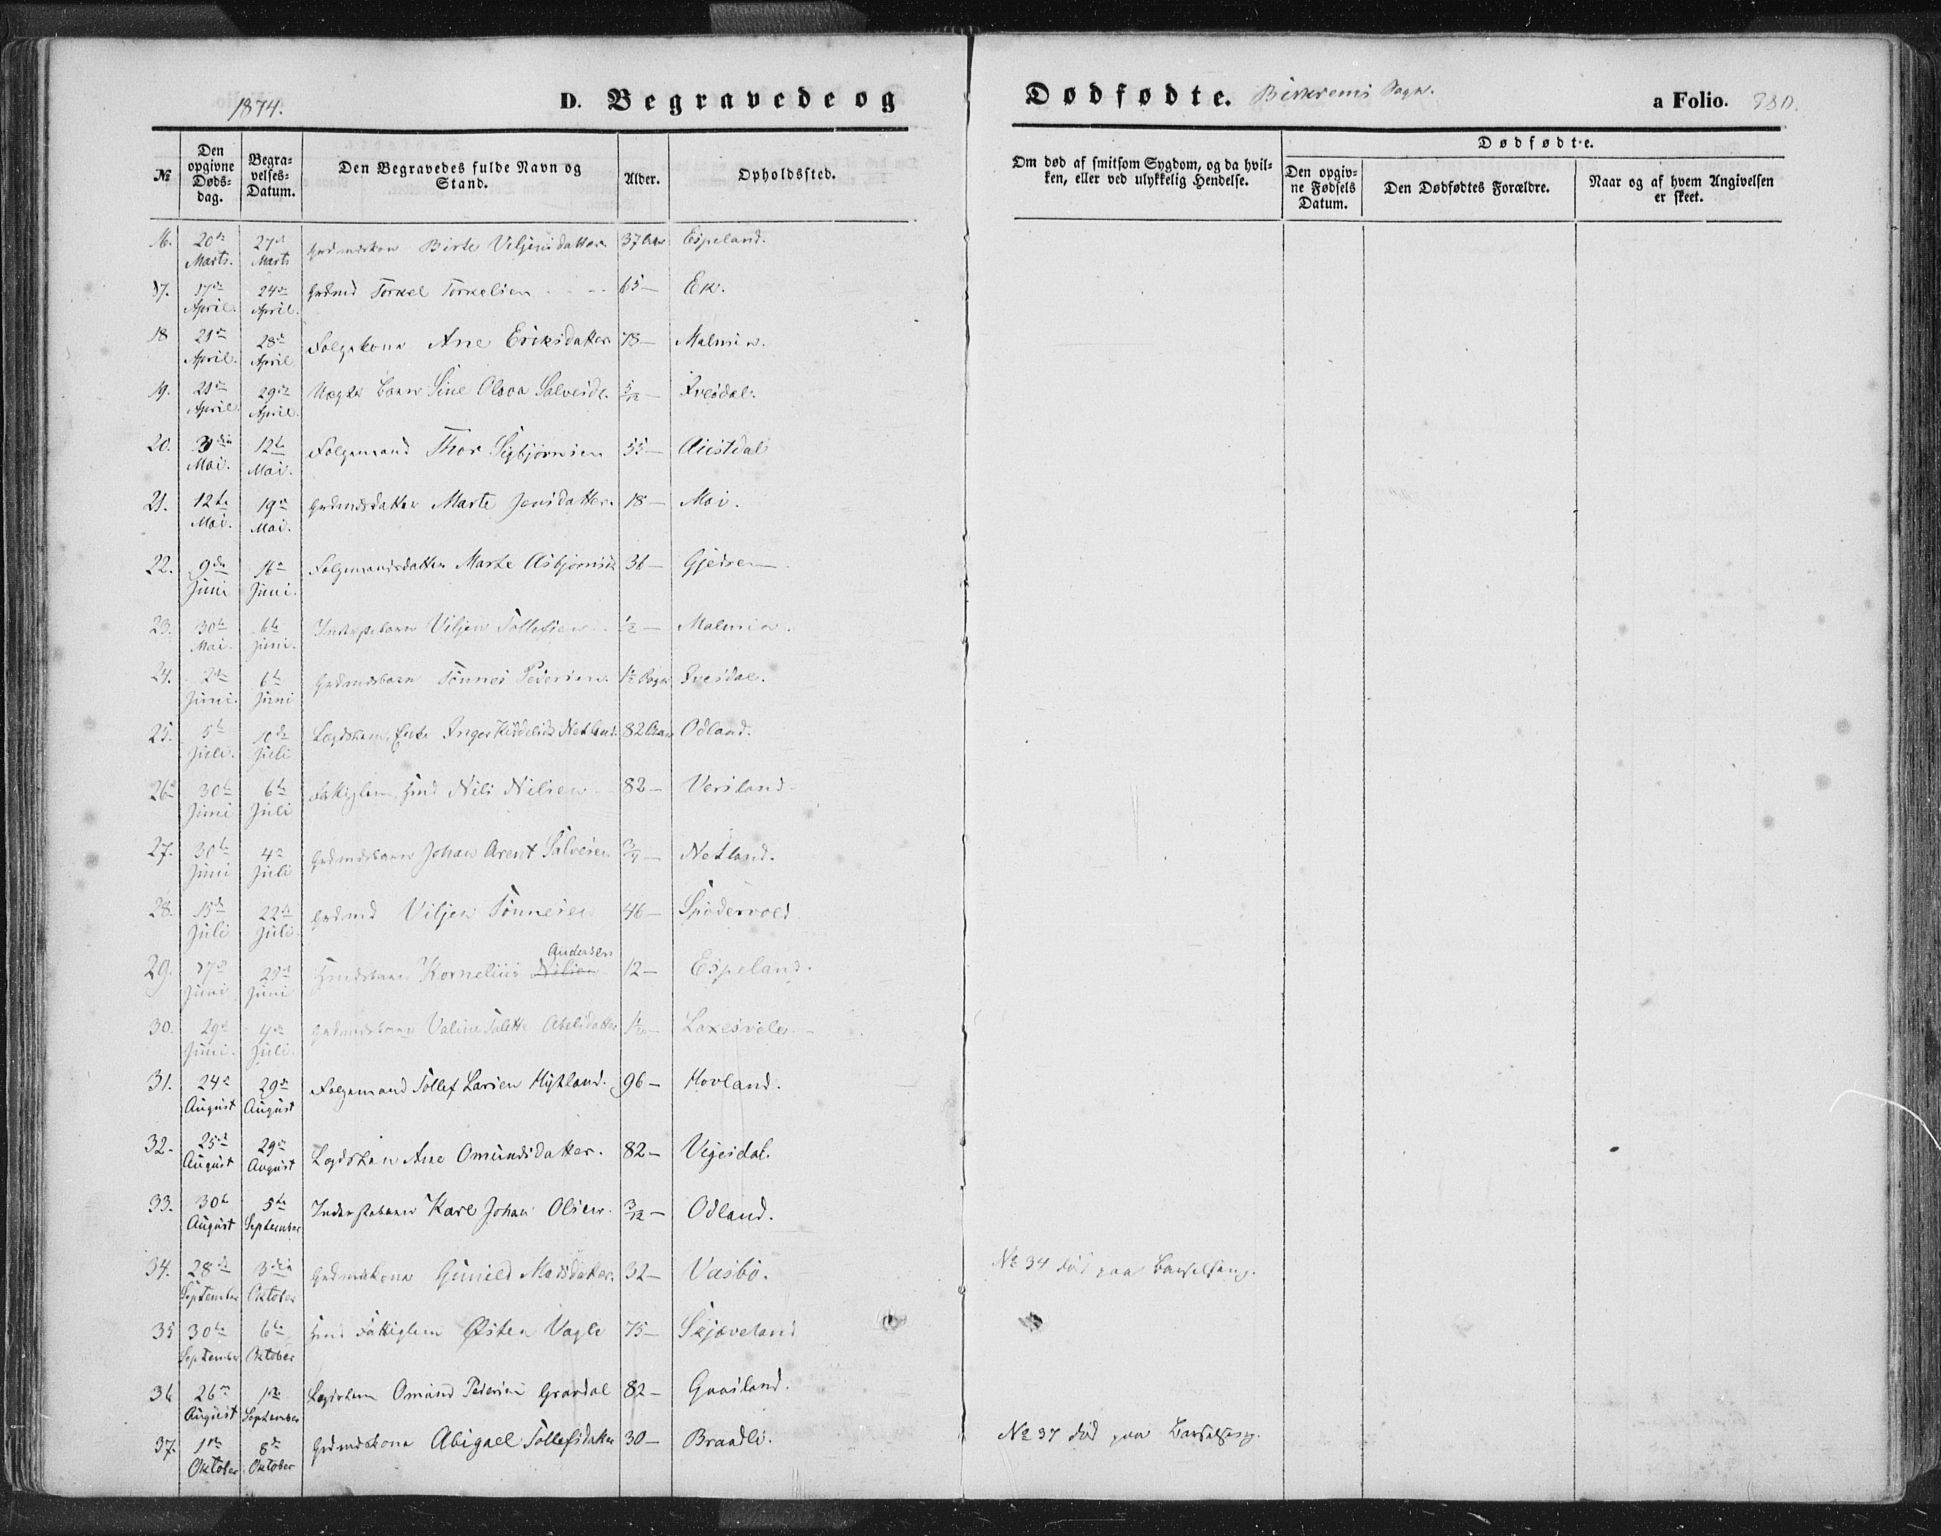 1874. D. Begravede og Dødfødte. Birkrems Sogn. a Folio. 280.
№ Den opgivne Døds-dag. Begra-velses-Datum. Den Begravedes fulde Navn og Stand. Alder. Opholdssted. Om død af smitsom Sygdom, og da hvil-ken, eller ved ulykkelig Hendelse. Dødfødte. Den opgiv-ne Fødsels Datum. Den Dødfødtes Forældre. Naar og af hvem Angivelsen er skeet.
16. 20de Marts. 27de Marts Grdmdskone Birte Viljensdatter 37 Aar Espeland.
17. 17de April. 24de April. Grdmd Torkel Torkelsen 65 — Ek.
18 21de April. 28de April Folgekone Ane Eriksdatter 78 — Malmin.
19. 21de April. 29de April. Uægte Barn Sine Olava Salvesdr. 5/12 — Ivesdal.
20. 3die Mai. 12te Mai. Folgemand Thor Sigbjørnsen 55 — Austdal
21. 12te Mai. 19de Mai. Grdmdsdatter Marte Jensdatter. 18 — Moi.
22. 9de Juni 16de Juni. Folgemandsdatter Marte Asbjørnsdr 36 — Gjedrem
23. 30te Mai. 6te Juni. Inderstebarn Viljen Tollefsen ½ — Malmin.
24. 2den Juni. 6te Juni Grdmdsbarn Tønnes Pedersen 1½ Dage Ivesdal.
25. 5te Juli. 10de Juli Lægdslem, Enke Inger Netland 82 Aar Odland.
26. 30te Juni 6te Juli Fattiglem, Hmd Nils Nilsen 82 — Versland
27. 30te Juni 4de Juli Grdmdsbarn Johan Arent Salvesen ¾ — Netland.
28. 15de Juli 22de Juli. Grdmd Viljen Tønnesen 46 — Spødervold
29. 17de Juni 23de Juni Hmdsbarn Kornelius Nilsen Andersen 12 — Espeland.
30. 29de Juni. 4de Juli. Grdmdsbarn Valine Talette Abelsdatter — Laxesvele.
31. 24de August 29de August Folgemand Tollef Larsen Hytland. 96 — Hovland.
32. 25de August 29de August Lægdslem Ane Omundsdatter. 82 — Vigesdal.
33. 30te August 5te September Inderstebarn Karl Johan Olsen. 3/12 — Odland.
34. 28de September 3die Oktober Grdmdskone Gunild Matsdatter. 32 — Vasbø. № 34 død paa Barselseng.
35 30te September 6te Oktober Hmd Fattiglem Østen Vagle 75 — Skjæveland
36 26de August 1ste September Lægdslem Omund Pedersen Gravdal 82 — Gaasland.
37. 1ste Oktober 8de Oktober Grdmdskone Abigael Tollefsdatter 30 — Brandli. № 37 død paa Barselseng.